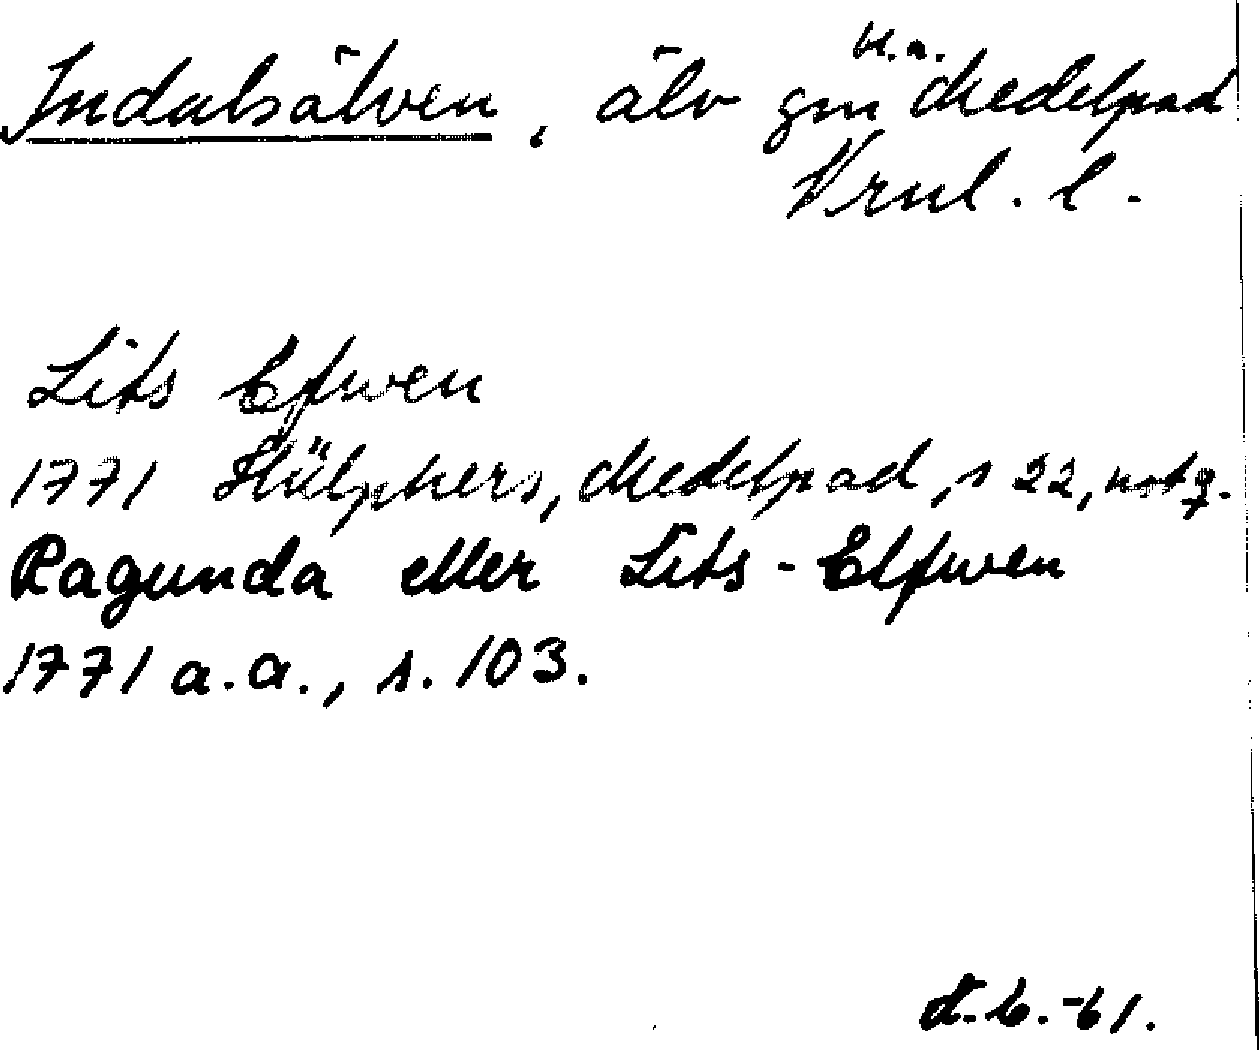 Indalsälven, älv gm bl.a. Medelpad
Vrnl. l.
Lits Efwen
1771 Hülphers, Medelpad, s 22, not q.
Ragunda eller Lits-Elfwen
1771 a.a., s. 103.
-61.